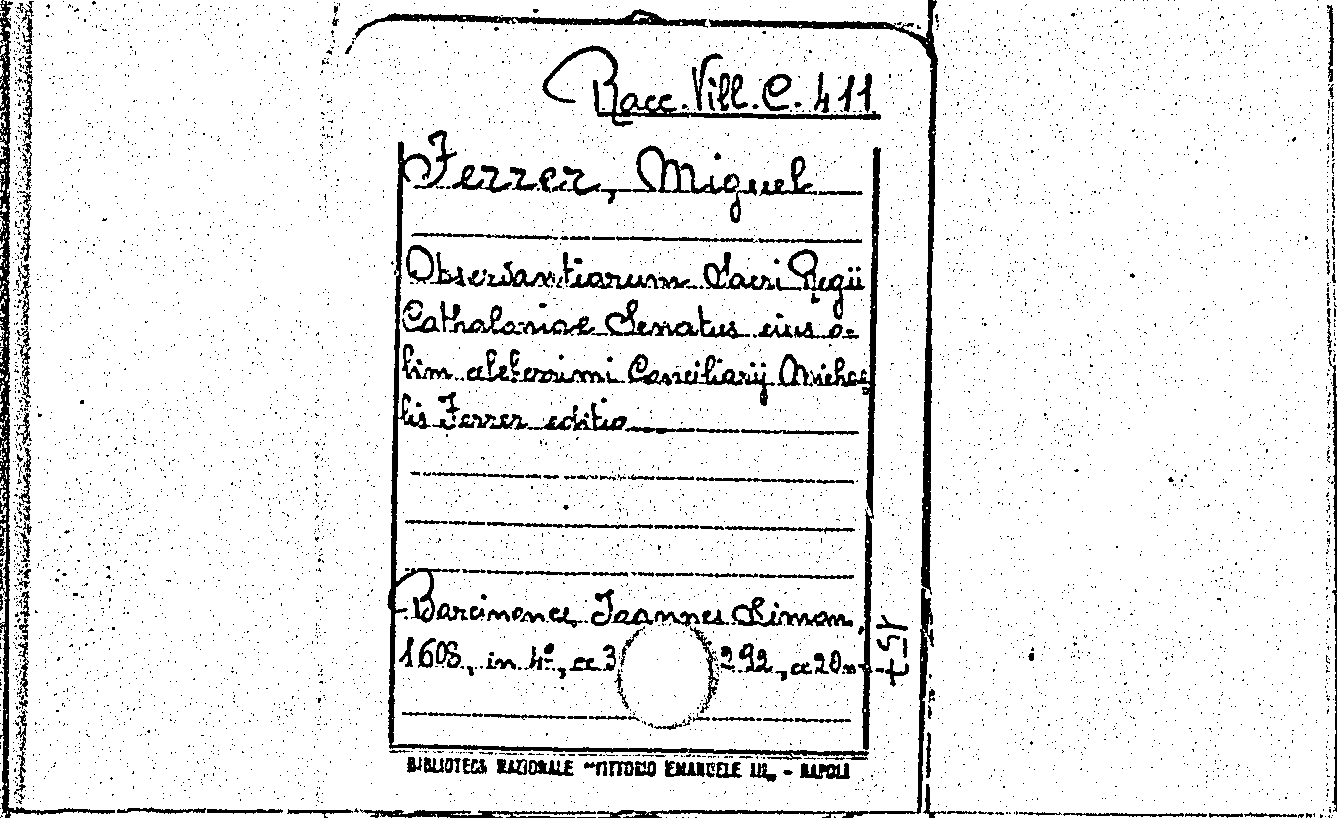 Racc. Vill. C. 411
Ferrer, Miguel
Observantiarum Sacri Regii
Cathaloniae Senatus eius o=
lim celeberrimi Consiliarij Michae
lis Ferrer editio
Barcinonee, Joannes Simon,
1608, in 4º, cc 3 292, cc 20
157
BIBLIOTECA NAZIONALE "VITTORIO EMANUELE III„ - NAPOLI